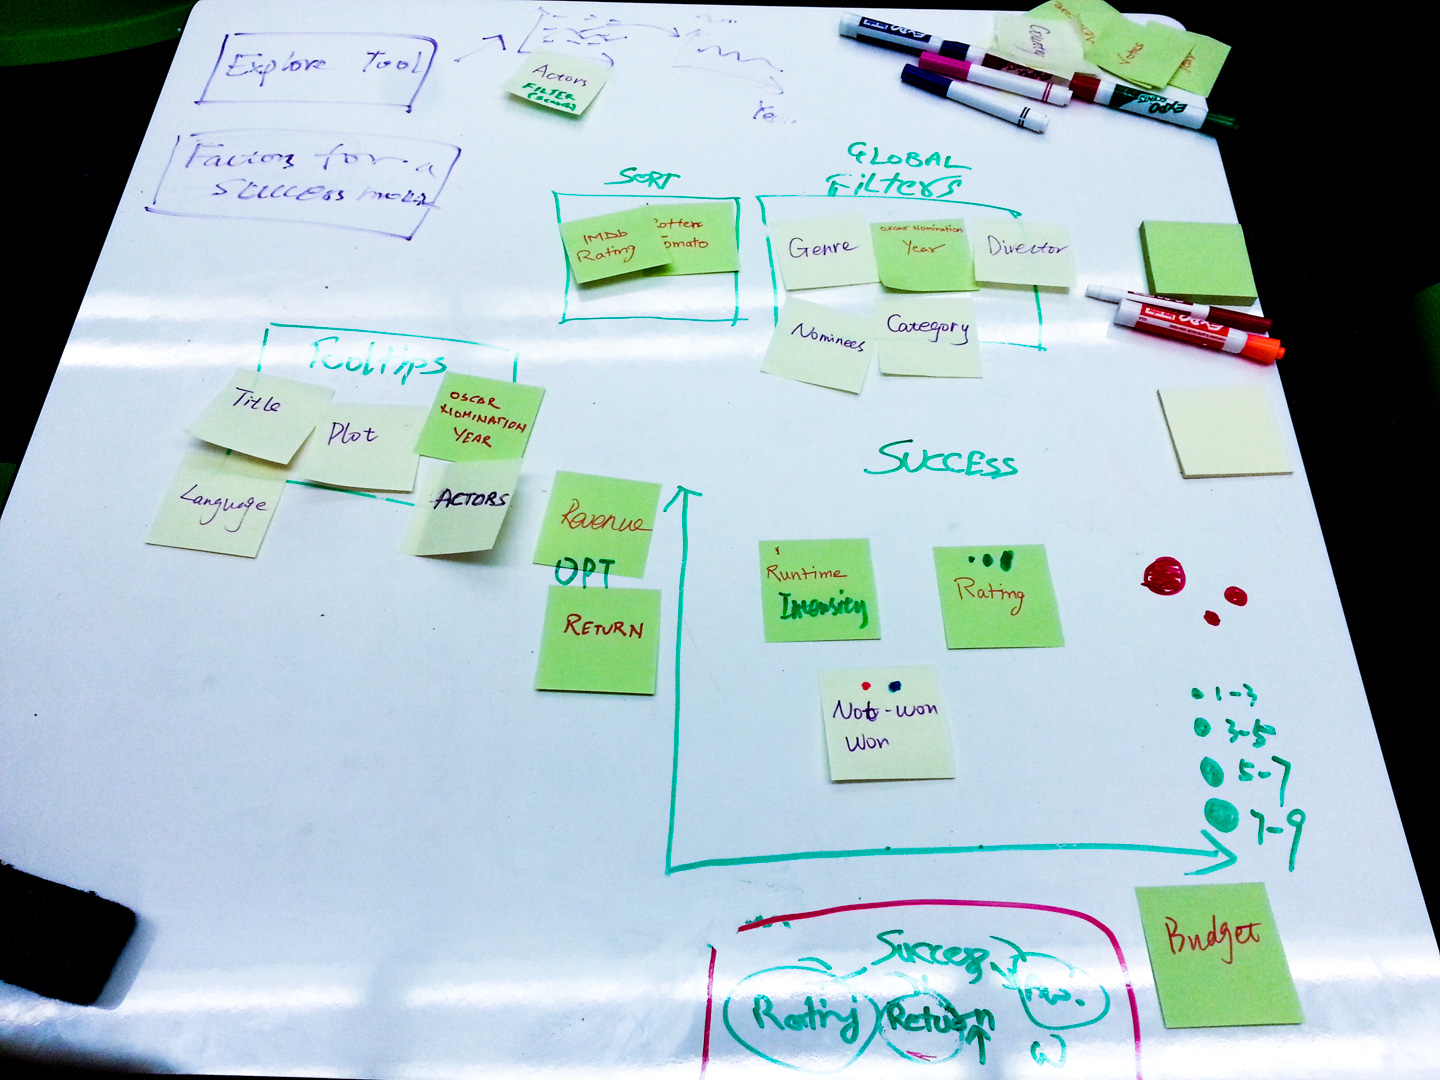 Explore Tool
Actors
FILTER
Country
Votes
EXPO
Factors for a
success movie
SORT
IMDb
Rating
Rotten
Tomato
GLOBAL
Filters
Genre
OSCAR Nomination
Year
Director
Nominees
Category
Tooltips
Title
Plot
OSCAR
NOMINATION
YEAR
Language
ACTORS
SUCCESS
Revenue
OPT
RETURN
Runtime
Intensity
Rating
Not-won
Won
1-3
3-5
5-7
7-9
Budget
Success
Rating
Return